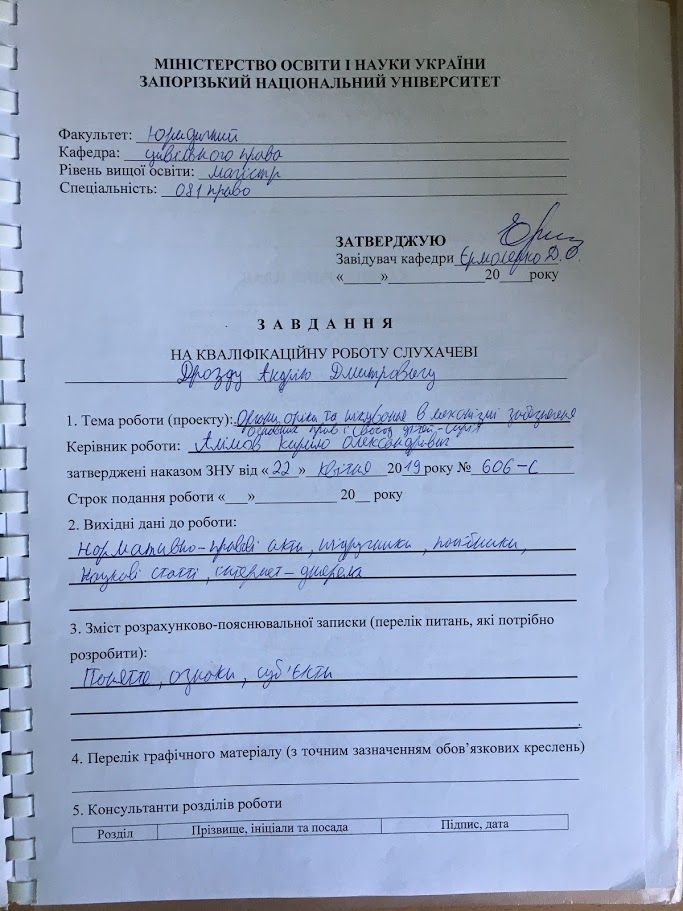 МІНІСТЕРСТВО ОСВІТИ І НАУКИ УКРАЇНИ
ЗАПОРІЗЬКИЙ НАЦІОНАЛЬНИЙ УНІВЕРСИТЕТ
Факультет: Юридичний
Кафедра: цивільного права
Рівень вищої освіти: магістр
Спеціальність: 081 право
ЗАТВЕРДЖУЮ
Завідувач кафедри Єрмоленко Д. О.
«_____»______________20____року
З А В Д А Н Н Я
НА КВАЛІФІКАЦІЙНУ РОБОТУ СЛУХАЧЕВІ
Дрозду Андрію Дмитровичу
1. Тема роботи (проекту): Органи опіки та піклування в механізмі забезпечення
основних прав і свобод дітей-сиріт
Керівник роботи: Алімов Кирило Олександрович
затверджені наказом ЗНУ від «22» квітня 2019 року № 606-с
Строк подання роботи «___»___________ 20__ року
2. Вихідні дані до роботи:
Нормативно-правові акти, підручники, посібники,
наукові статті, інтернет-джерела
3. Зміст розрахунково-пояснювальної записки (перелік питань, які потрібно
розробити):
Поняття, ознаки, суб'єкти
4. Перелік графічного матеріалу (з точним зазначенням обов’язкових креслень)
5. Консультанти розділів роботи
Розділ Прізвище, ініціали та посада Підпис, дата